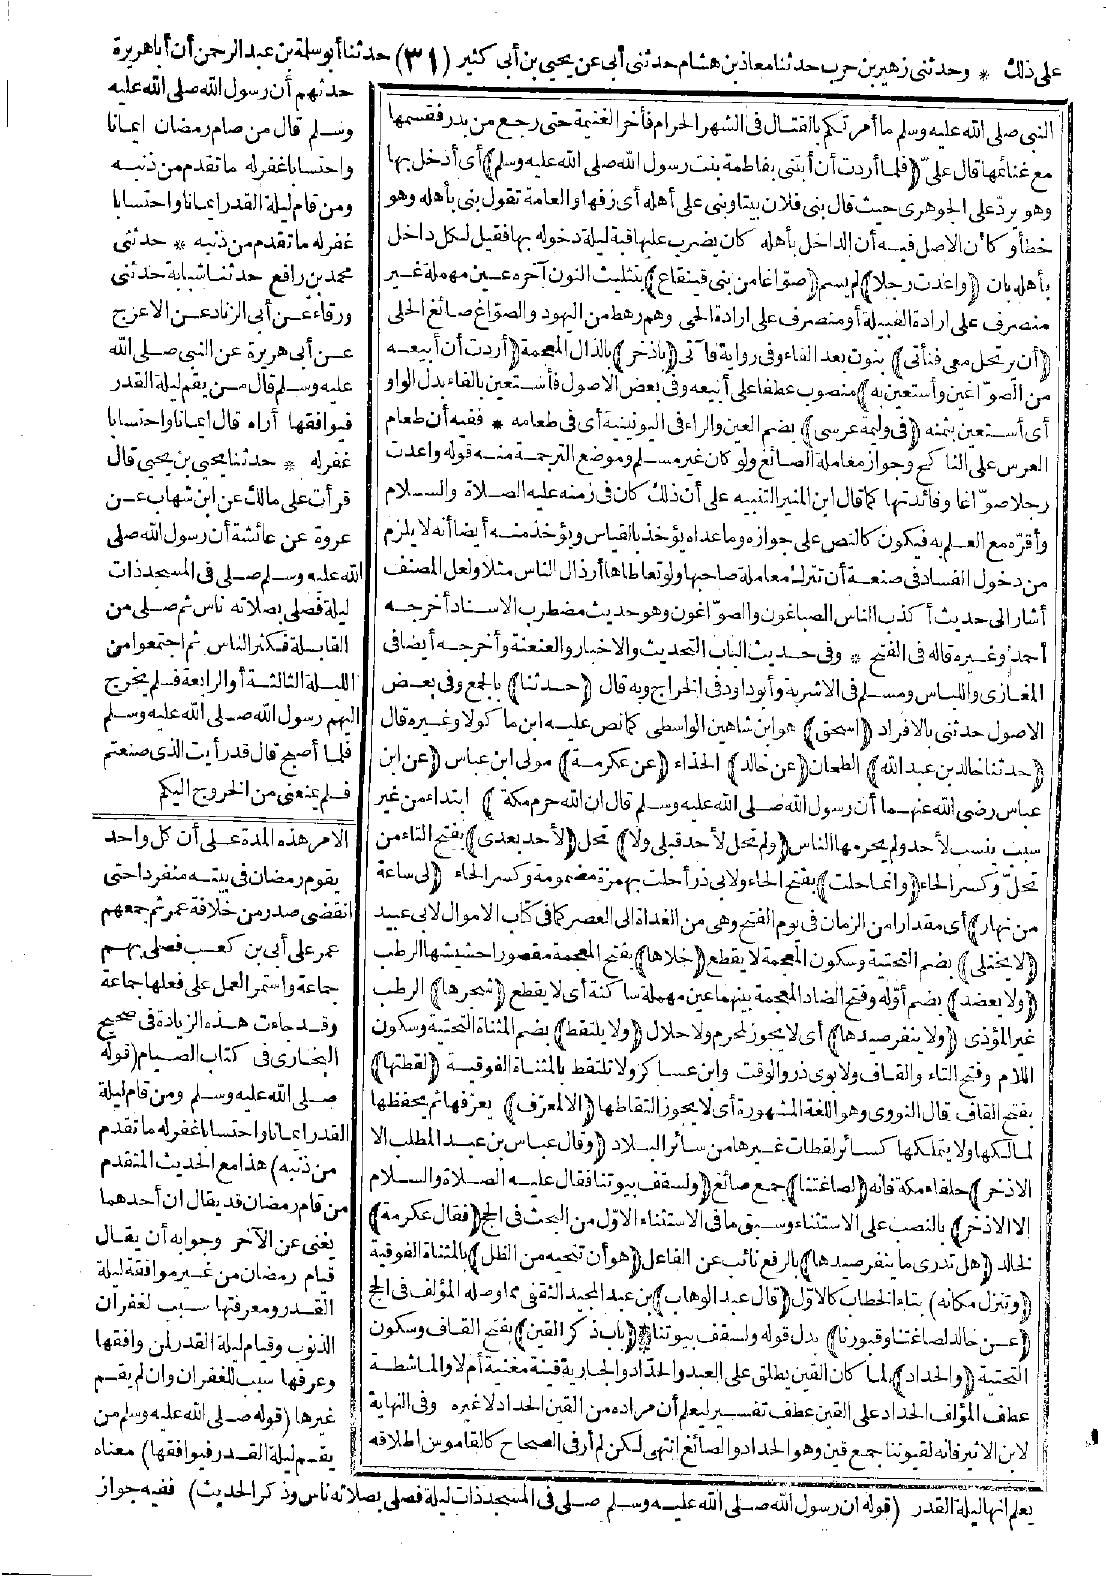 على ذلك * وحدثنى زهير بن حرب حدثنا معاذ بن هشام حدثنى أبى عن يحيى بن أبى كثير (٣١) حدثنا أبو سلمة بن عبد الرحمن أن أبا هريرة
حدثهم أن رسول الله صلى الله عليه
وسلم قال من صام رمضان ايمانا
واحتسابا غفر له ما تقدم من ذنبه
ومن قام ليلة القدر ايمانا واحتسابا
غفر له ما تقدم من ذنبه * حدثنى
محمد بن رافع حدثنا شبابة حدثنى
ورقاء عن أبى الزناد عن الاعرج
عن أبى هريرة عن النبى صلى الله
عليه وسلم قال من يقم ليلة القدر
فيوافقها أراه قال ايمانا واحتسابا
غفر له * حدثنا يحيى بن يحيى قال
قرأت على مالك عن ابن شهاب عن
عروة عن عائشة أن رسول الله صلى
الله عليه وسلم صلى فى المسجد ذات
ليلة فصلى بصلاته ناس ثم صلى من
القابلة فكثر الناس ثم اجتمعوا من
الليلة الثالثة أو الرابعة فلم يخرج
اليهم رسول الله صلى الله عليه وسلم
فلما أصبح قال قد رأيت الذى صنعتم
فلم يمنعنى من الخروج اليكم
النبى صلى الله عليه وسلم ما أمر تكم بالقتال فى الشهر الحرام فأخر الغنيمة حتى رجع من بدر فقسمها
مع غنائمها قال على (فلما أردت أن أبتنى بفاطمة بنت رسول الله صلى الله عليه وسلم) أى أدخل بها
وهو يرد على الجوهرى حيث قال بنى فلان بيتا وبنى على أهله أى زفها والعامة تقول بنى بأهله وهو
خطأ وكأن الاصل فيه أن الداخل بأهله كان يضرب عليها قبة ليلة دخوله بها فقيل لكل داخل
بأهله بان (واعدت رجلا) لم يسم (صوّاغا من بنى قينقاع) بتثليث النون آخره عين مهملة غير
منصرف على ارادة القبيلة أو منصرف على ارادة الحى وهم رهط من اليهود والصوّاغ صائغ الحلى
(أن يرتحل معى فنأتى) بنون بعد الفاء وفى رواية فآتى (باذخر) بالذال المعجمة (أردت أن أبيعه
من الصوّاغين وأستعين به) منصوب عطفا على أبيعه وفى بعض الاصول فأستعين بالفاء بدل الواو
أى أستعين بثمنه (فى وليمة عرسى) بضم العين والراء فى اليونينية أى فى طعامه * ففيه أن طعام
العرس على الناكح وجواز معاملة الصائغ ولو كان غير مسلم وموضع الترجمة منه قوله واعدت
رجلا صوّاغا وفائدتها كما قال ابن المنير التنبيه على أن ذلك كان فى زمنه عليه الصلاة والسلام
وأقرّه مع العلم به فيكون كالنص على جوازه وما عداه يؤخذ بالقياس ويؤخذ منه أيضا أنه لا يلزم
من دخول الفساد فى صنعة أن تترك معاملة صاحبها ولو تعاطاها أرذال الناس مثلا ولعل المصنف
أشار الى حديث أكذب الناس الصباغون والصوّاغون وهو حديث مضطرب الاسناد أخرجه
أحمد وغيره قاله فى الفتح * وفى حديث الباب التحديث والاخبار والعنعنة وأخرجه أيضا فى
المغازى واللباس ومسلم فى الاشربة وأبو داود فى الخراج وبه قال (حدثنا) بالجمع وفى بعض
الاصول حدثنى بالافراد (اسحق) هو ابن شاهين الواسطى كما نص عليه ابن ماكولا وغيره قال
(حدثنا خالد بن عبد الله) الطحان (عن خالد) الحذاء (عن عكرمة) مولى ابن عباس (عن ابن
عباس رضى الله عنهما أن رسول الله صلى الله عليه وسلم قال ان الله حرم مكة) ابتداء من غير
سبب ينسب لأحد ولم يحرمها الناس (ولم تحل لأحد قبلى ولا) تحل (لأحد بعدى) بفتح التاء من
تحلّ وكسر الحاء (وانما حلت) بفتح الحاء ولابى ذر أحلت بهمزة مضمومة وكسر الحاء (لى ساعة
من نهار) أى مقدارا من الزمان فى يوم الفتح وهى من الغداة الى العصر كما فى كتاب الاموال لابى عبيد
(لا يختلى) بضم التحتية وسكون المعجمة لا يقطع (خلاها) بفتح المعجمة مقصورا حشيشها الرطب
(ولا يعضد) بضم أوّله وفتح الضاد المعجمة بينهما عين مهملة ساكنة أى لا يقطع (شجرها) الرطب
غير المؤذى (ولا ينفر صيدها) أى لا يجوز لمحرم ولا حلال (ولا يلتقط) بضم المثناة التحتية وسكون
اللام وفتح التاء والقاف ولابوى ذر والوقت وابن عساكر ولا تلتقط بالمثناة الفوقية (لقطتها)
بفتح القاف قال النووى وهو اللغة المشهورة أى لا يجوز التقاطها (الا لمعرّف) يعرّفها ثم يحفظها
لمالكها ولا يتملكها كسائر لقطات غيرها من سائر البلاد (وقال عباس بن عبد المطلب الا
الاذخر) حلفاء مكة فانه (لصاغتنا) جمع صائغ (ولسقف بيوتنا فقال عليه الصلاة والسلام
الا الاذخر) بالنصب على الاستثناء وسبق ما فى الاستثناء الاوّل من البحث فى الحج (فقال عكرمة)
لخالد (هل تدرى ما ينفر صيدها) بالرفع نائب عن الفاعل (هو أن تنحيه من الظل) بالمثناة الفوقية
(وتنزل مكانه) بتاء الخطاب كالاوّل (قال عبد الوهاب) بن عبد المجيد الثقفى مما وصله المؤلف فى الحج
(عن خالد لصاغتنا وقبورنا) بدل قوله ولسقف بيوتنا * (باب ذكر القين) بفتح القاف وسكون
التحتية (والحداد) لما كان القين يطلق على العبد والحداد والجارية قينة مغنية أم لا والماشطة
عطف المؤلف الحداد على القين عطف تفسير ليعلم أن مراده من القين الحداد لا غيره وفى النهاية
لابن الاثير فانه لقيوننا جمع قين وهو الحداد والصائغ انتهى لكن لم أر فى الصحاح كالقاموس اطلاقه
الامر هذه المدة على أن كل واحد
يقوم رمضان فى بيته منفردا حتى
انقضى صدر من خلافة عمر ثم جمعهم
عمر على أبى بن كعب فصلى بهم
جماعة واستمر العمل على فعلها جماعة
وقد جاءت هذه الزيادة فى صحيح
البخارى فى كتاب الصيام (قوله
صلى الله عليه وسلم ومن قام ليلة
القدر ايمانا واحتسابا غفر له ما تقدم
من ذنبه) هذا مع الحديث المتقدم
من قام رمضان قد يقال ان أحدهما
يغنى عن الآخر وجوابه أن يقال
قيام رمضان من غير موافقة ليلة
القدر ومعرفتها سبب لغفران
الذنوب وقيام ليلة القدر لمن وافقها
وعرفها سبب للغفران وان لم يقم
غيرها (قوله صلى الله عليه وسلم من
يقم ليلة القدر فيوافقها) معناه
يعلم انها ليلة القدر (قوله ان رسول الله صلى الله عليه وسلم صلى فى المسجد ذات ليلة فصلى بصلاته ناس وذكر الحديث) ففيه جواز